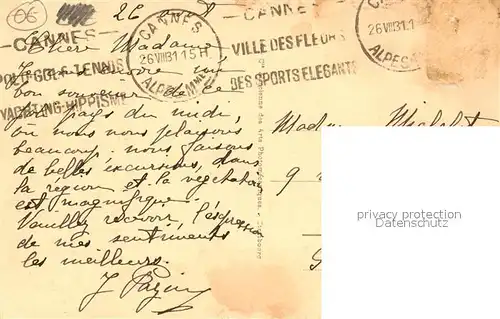 06
26 août
CANNES
POLO-GOLF-TENNIS
YACHTING-HIPPISME
CANNES
26 VIII 31 15 H
ALPES MMES
CANNES
VILLE DES FLEURS
DES SPORTS ELEGANTS
26 VIII 31
ALPES
Chère Madame
bon souvenir de ce
pays du midi,
où nous nous plaisons
beaucoup. nous faisons
de belles excursions, dans
la région et la végétation
est magnifique.
Veuillez recevoir l'expression
de mes sentiments
les meilleurs.
Madame Michelet
9
privacy protection
Datenschutz